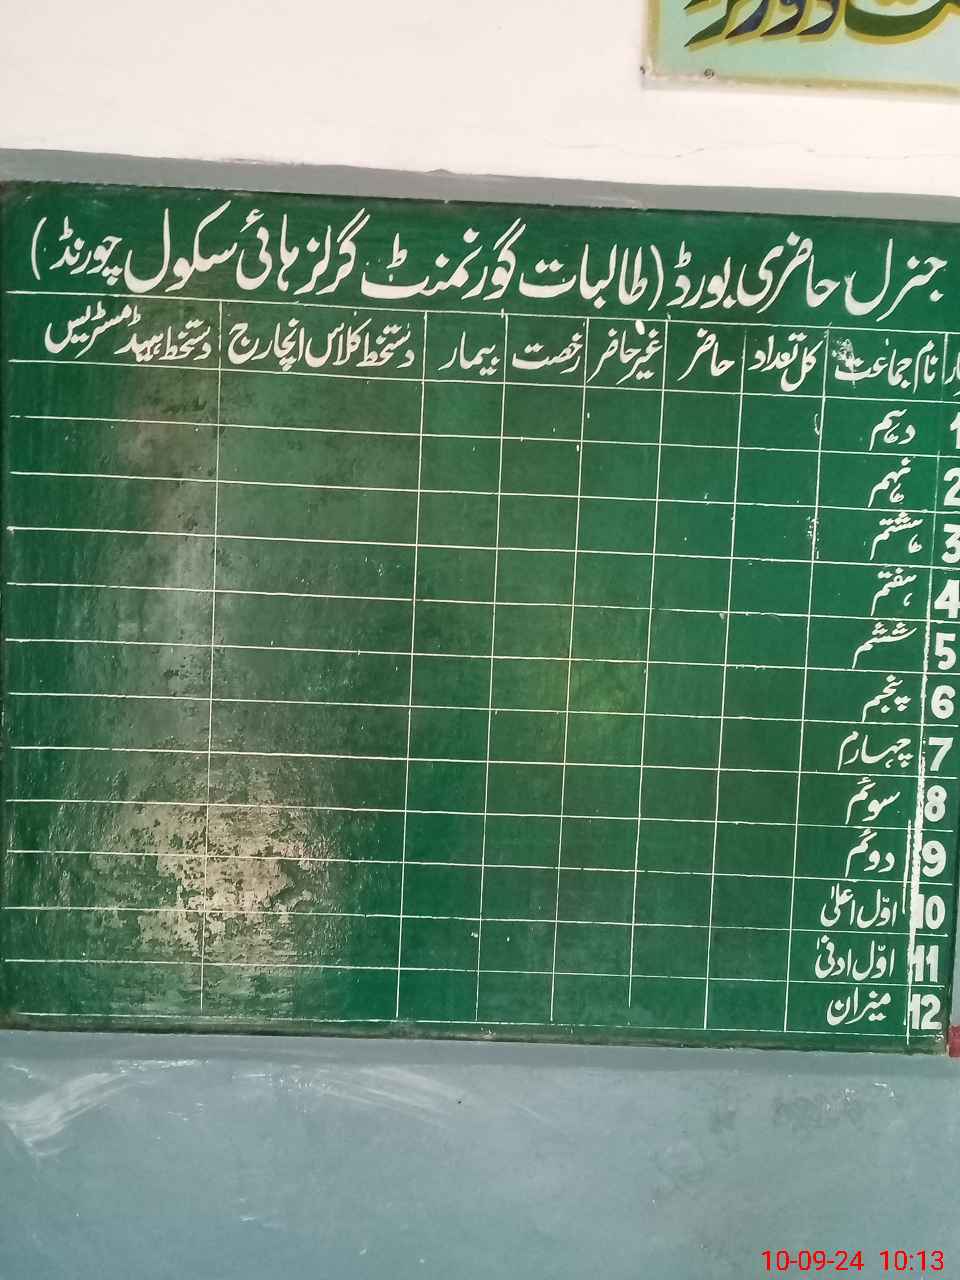 جنرل حاضری بورڈ (طالبات گورنمنٹ گرلز ہائی سکول چورنڈ)
نام جماعت کل تعداد حاضر غیر حاضر رخصت بیمار دستخط کلاس انچارج دستخط ہیڈ مسٹریس
1 دہم
2 نہم
3 ہشتم
4 ہفتم
5 ششم
6 پنجم
7 چہارم
8 سوئم
9 دوئم
10 اوّل اعلیٰ
11 اوّل ادنیٰ
12 میزان
10-09-24 10:13